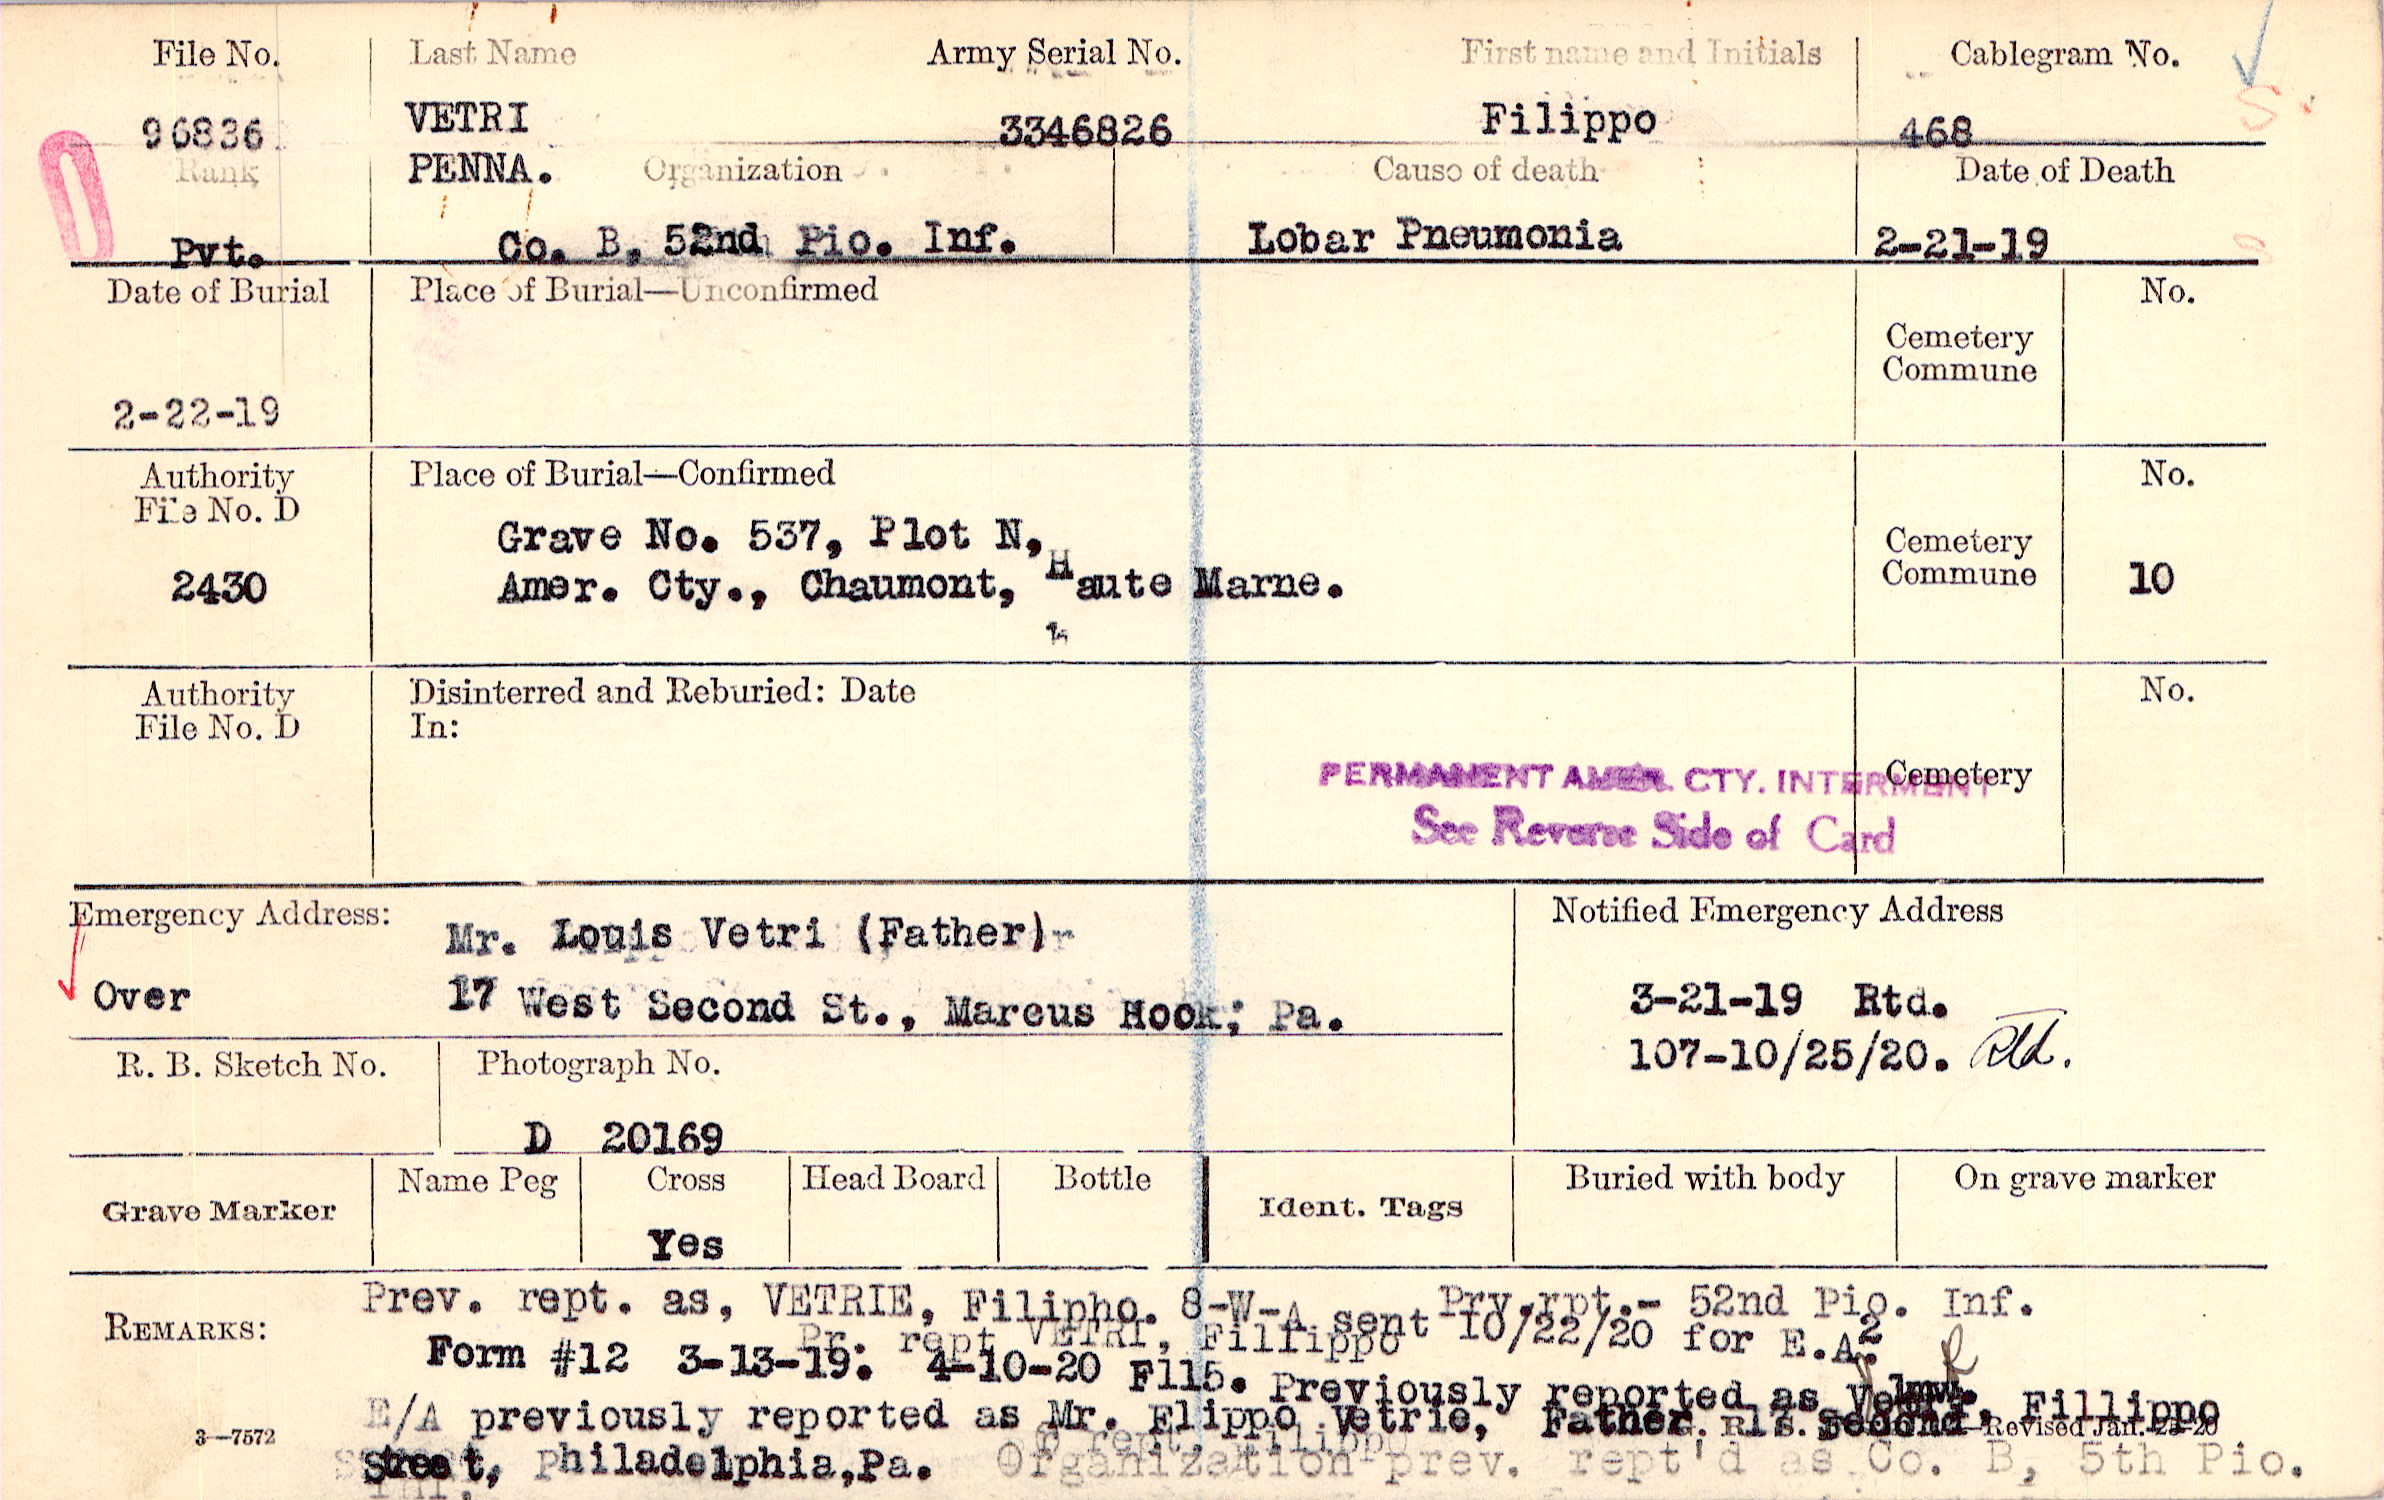 File No. Last Name Army Serial No. First name and Initials Cablegram No.
96836 VETRI 3346826 Filippo 468
Rank PENNA. Organization Cause of death Date of Death
Pvt. Co. B, 52nd Pio. Inf. Lobar Pneumonia 2-21-19
Date of Burial Place of Burial—Unconfirmed No.
Cemetery
Commune
2-22-19
Authority Place of Burial—Confirmed No.
File No. D
Grave No. 537, Plot N, Cemetery
2430 Amer. Cty., Chaumont, Haute Marne. Commune 10
Authority Disinterred and Reburied: Date No.
File No. D In:
PERMANENT AMER. CTY. INTERMENT Cemetery
See Reverse Side of Card
Emergency Address: Mr. Louis Vetri (Father) Notified Emergency Address
Over 17 West Second St., Marcus Hook; Pa. 3-21-19 Rtd.
107-10/25/20. Rtd.
R. B. Sketch No. Photograph No.
D 20169
Grave Marker Name Peg Cross Head Board Bottle Ident. Tags Buried with body On grave marker
Yes
REMARKS: Prev. rept. as, VETRIE, Filipho. 8-W-A sent 10/22/20 for E.A. Prv.rpt.- 52nd Pio. Inf.
Pr. rept VETRI, Fillippo
Form #12 3-13-19. 4-10-20 F115. Previously reported as Fillippo
E/A previously reported as Mr. Flippo Vetrie, Father Second
3—7572 Revised Jan.
Street, Philadelphia,Pa. Organization prev. rept'd as Co. B, 5th Pio.
Inf.